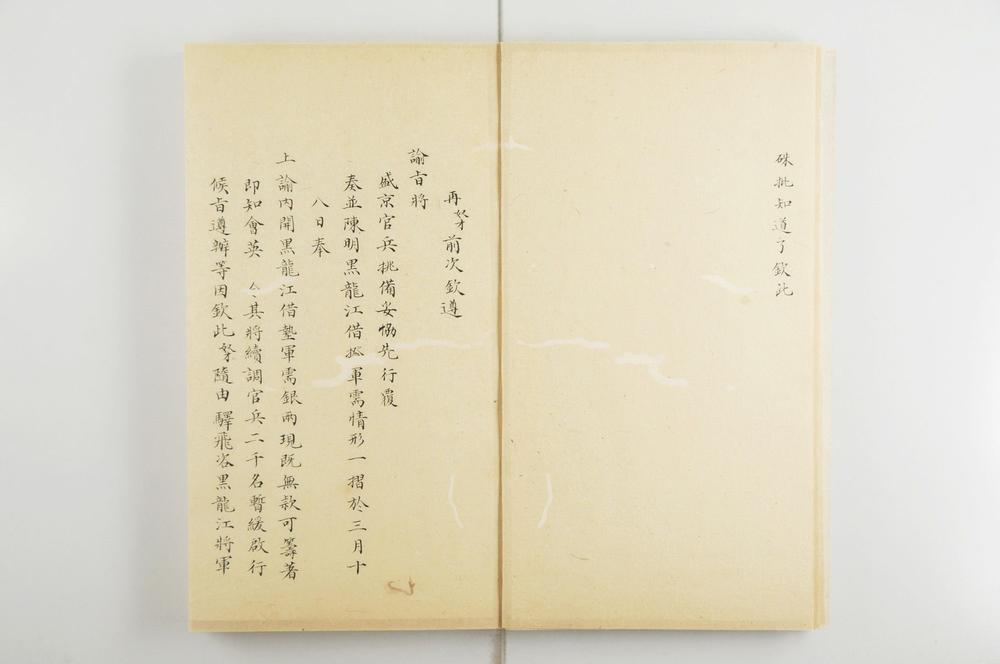 硃批知道了欽此
再奴才前次欽遵
諭旨將
盛京官兵挑備妥協先行覆
奏並陳明黑龍江借撥軍需情形一摺於三月十
八日奉
上諭內開黑龍江借墊軍需銀兩現既無款可籌著
即知會英 令其將續調官兵二千名暫緩啟行
候旨遵辦等因欽此奴才隨由驛飛咨黑龍江將軍